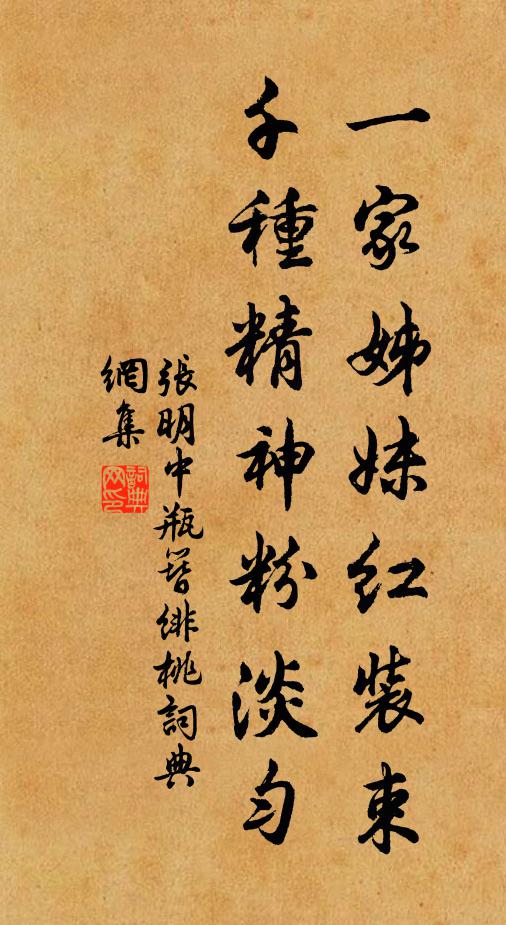 一家姊妹紅裝束
千種精神粉淡勻
張明中瓶簪緋桃詞典
網集
詞典
網印